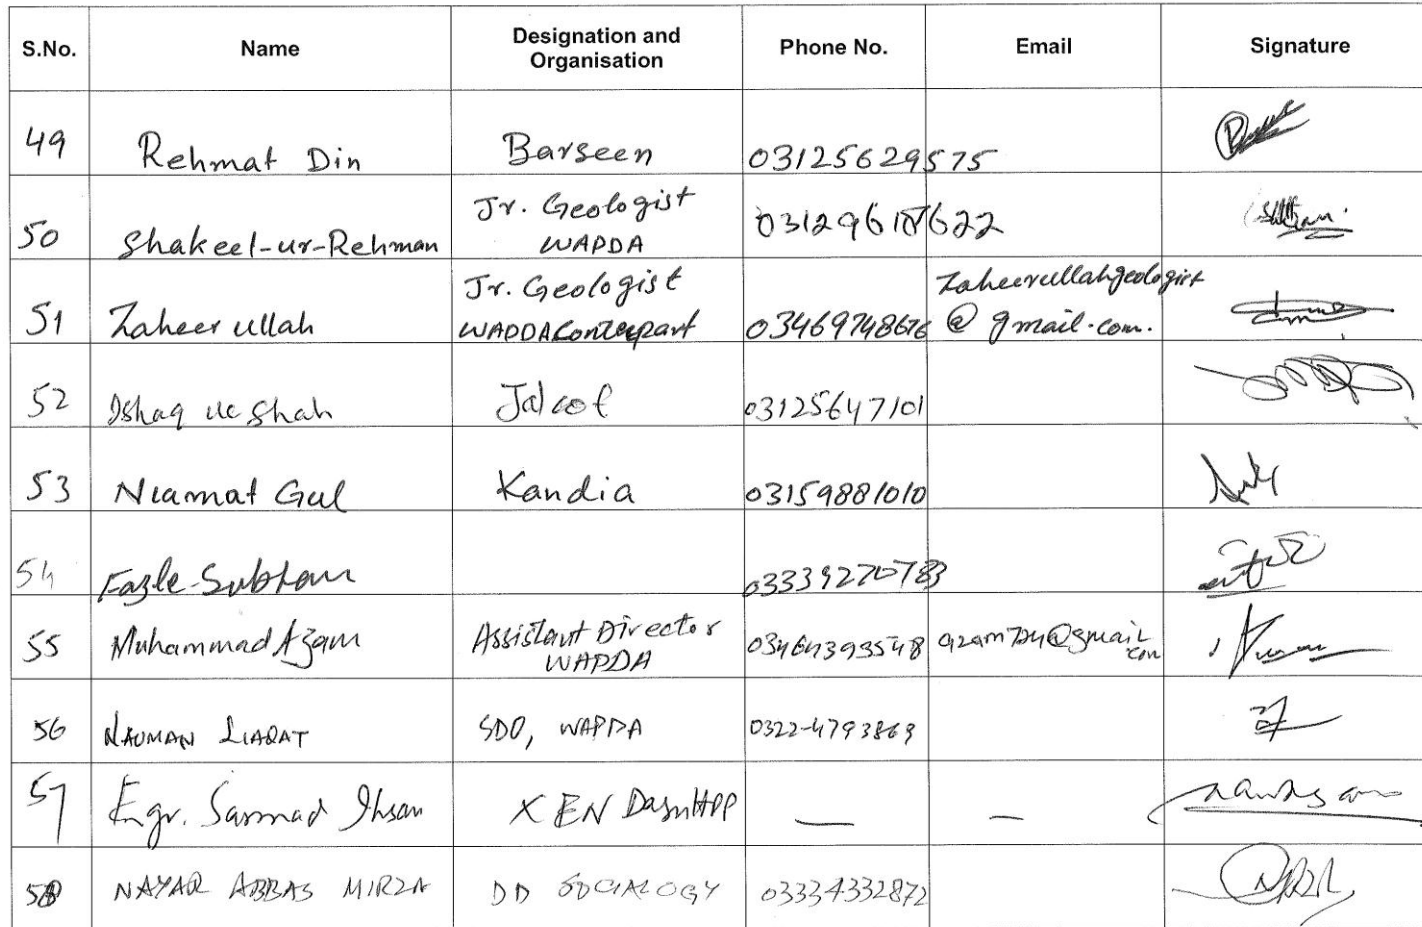 S.No. Name Designation and Organisation Phone No. Email Signature
49 Rehmat Din Barseen 03125629575
50 Shakeel-ur-Rehman Jr. Geologist WAPDA
51 Zaheer ullah Jr. Geologist WAPDA Zaheerullahgeologist @ gmail.com.
52 Shah 03125647101
53 Niamat Gul Kandia 03159881010
54 Fazle-Subhan 03339270783
55 Muhammad Azam Assistant Director WAPDA 03464393548
56 NAUMAN LIAQAT SDO, WAPDA 0322-4793869
57 Engr. Sarmad Ihsan XEN — —
58 NAYAR ABBAS MIRZA DD SOCIALOGY 03334332872